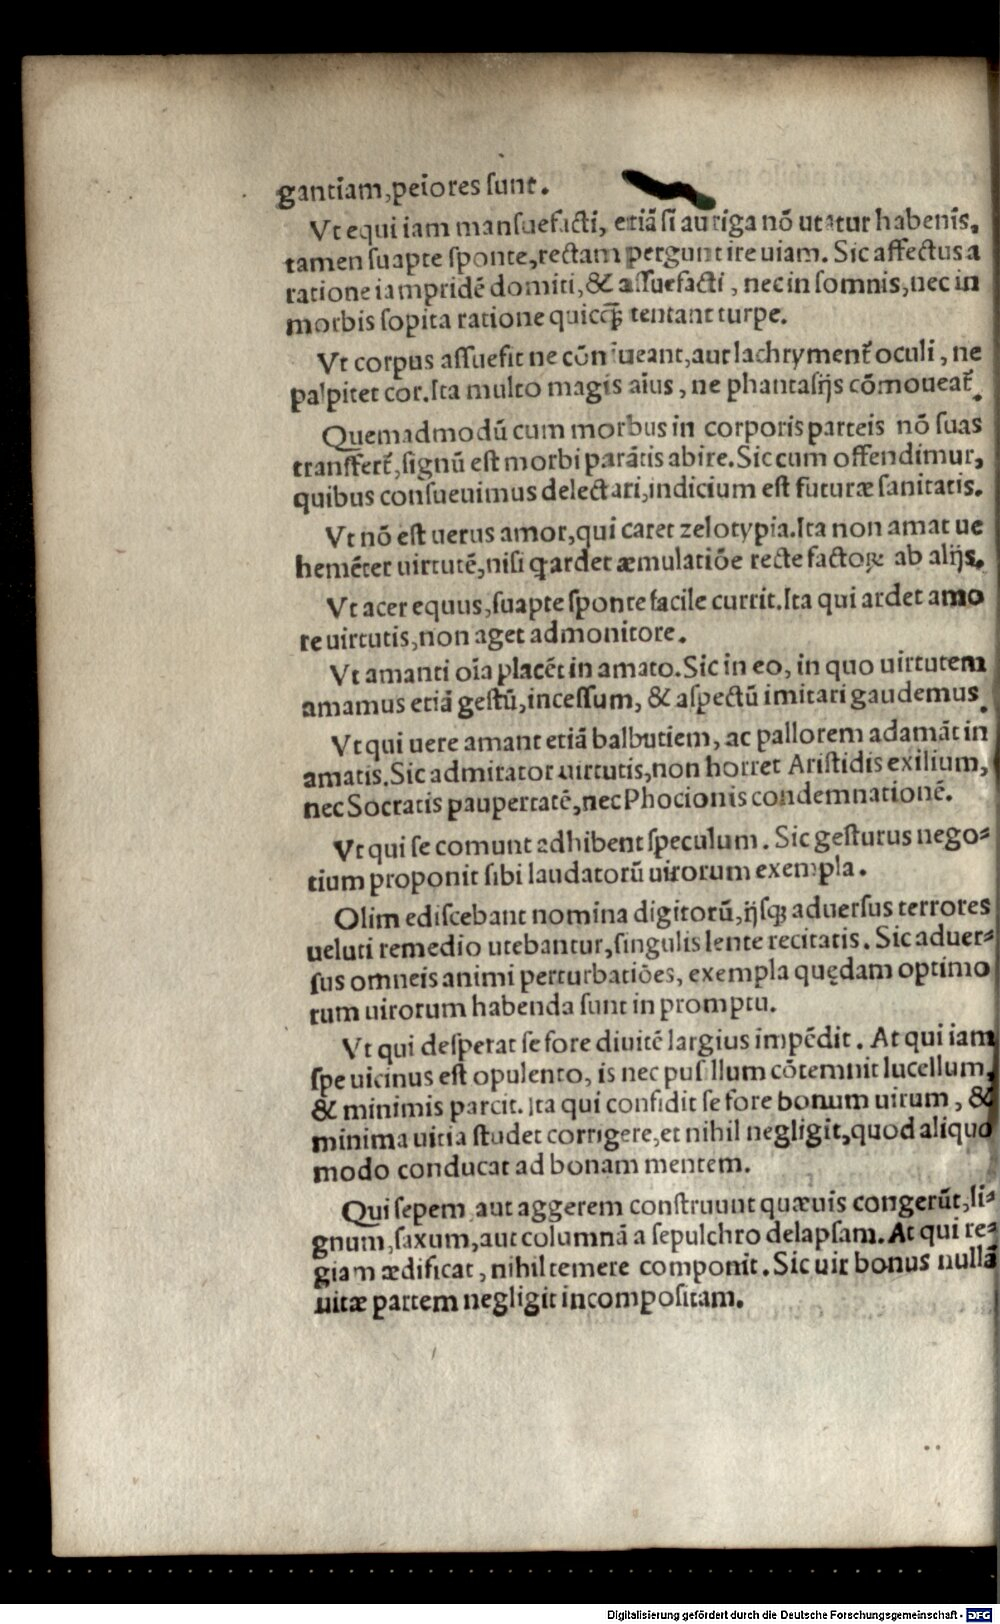 gantiam,peiores sunt.
Vt equi iam mansuefacti, etiā si auriga nō utatur habenis,
tamen suapte sponte,rectam pergunt ire uiam. Sic affectus a
ratione iampridē domiti,& assuefacti, nec in somnis,nec in
morbis sopita ratione quicq̄ȝ tentant turpe.
Vt corpus assuefit ne cōniueant,aut lachrymenť oculi, ne
palpitet cor.Ita multo magis aīus, ne phantasijs cōmoueať.
Quemadmodū cum morbus in corporis parteis nō suas
transferť,signū est morbi parātis abire.Sic cum offendimur,
quibus consueuimus delectari,indicium est futuræ sanitatis.
Vt nō est uerus amor,qui caret zelotypia.Ita non amat ue
hemēter uirtutē,nisi q ardet æmulatiōe recte factoꝝ ab alijs.
Vt acer equus,suapte sponte facile currit.Ita qui ardet amo
re uirtutis,non aget admonitore.
Vt amanti oīa placēt in amato.Sic in eo, in quo uirtutem
amamus etiā gestū,incessum, & aspectū imitari gaudemus.
Vt qui uere amant etiā balbutiem, ac pallorem adamāt in
amatis.Sic admirator uirtutis,non horret Aristidis exilium,
nec Socratis paupertatē,nec Phocionis condemnationē.
Vt qui se comunt adhibent speculum. Sic gesturus nego⸗
tium proponit sibi laudatorū uirorum exempla.
Olim ediscebant nomina digitorū,ijsqȝ aduersus terrores
ueluti remedio utebantur,singulis lente recitatis. Sic aduer⸗
sus omneis animi perturbatiōes, exempla quędam optimo
rum uirorum habenda sunt in promptu.
Vt qui desperat se fore diuitē largius impēdit. At qui iam
spe uicinus est opulento, is nec pusillum cōtemnit lucellum,
& minimis parcit. Ita qui confidit se fore bonum uirum, &
minima uitia studet corrigere,et nihil negligit,quod aliquo
modo conducat ad bonam mentem.
Qui sepem aut aggerem construunt quæuis congerūt,li⸗
gnum,saxum,aut columnā a sepulchro delapsam. At qui re⸗
giam ædificat, nihil temere componit. Sic uir bonus nullā
uitæ partem negligit incompositam.
Digitalisierung gefördert durch die Deutsche Forschungsgemeinschaft - DFG